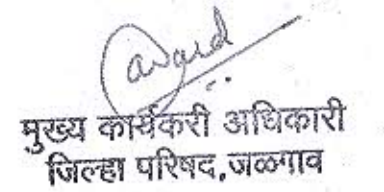 मुख्य कार्यकरी अधिकारी
जिल्हा परिषद,जळगाव